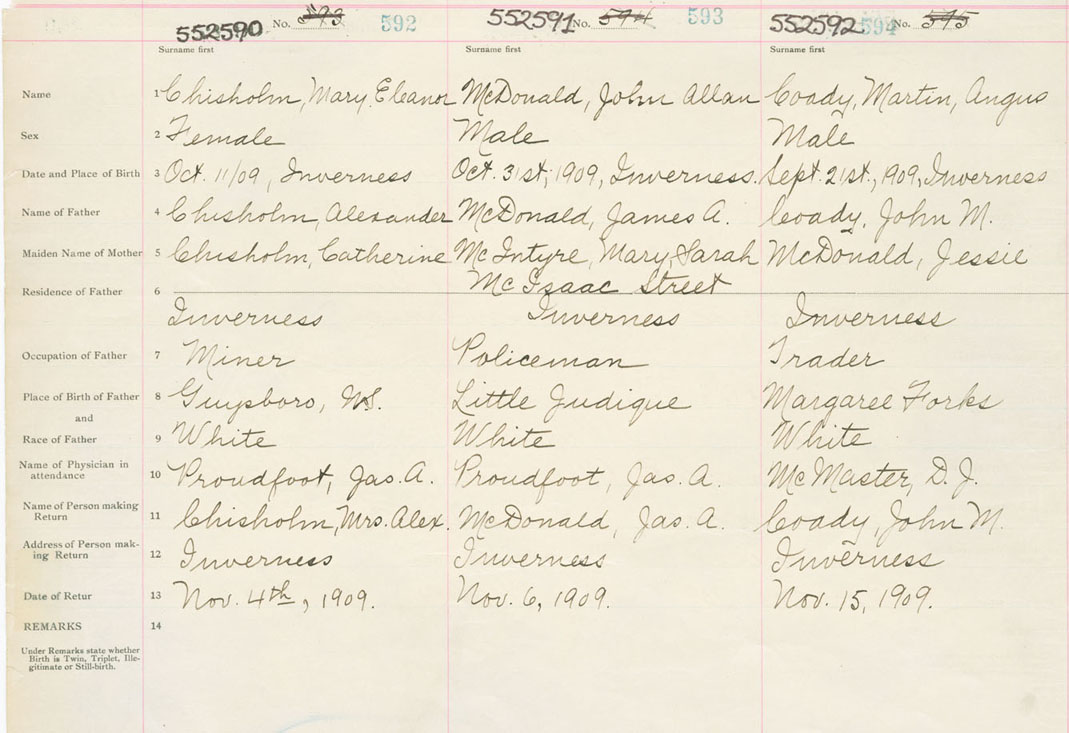 552590 No. 593 592 552591 No. 594 593 552592 594 No. 595
Surname first Surname first Surname first
Name 1 Chisholm, Mary Eleanor McDonald, John Allan Coady, Martin, Angus
Sex 2 Female Male Male
Date and Place of Birth 3 Oct. 11/09, Inverness Oct. 31st, 1909, Inverness. Sept. 21st., 1909, Inverness
Name of Father 4 Chisholm, Alexander McDonald, James A. Coady, John M.
Maiden Name of Mother 5 Chisholm, Catherine McIntyre, Mary Sarah McDonald, Jessie
Residence of Father 6 McIsaac Street
Inverness Inverness Inverness
Occupation of Father 7 Miner Policeman Trader
Place of Birth of Father 8 Guysboro, N.S. Little Judique Margaree Forks
and
Race of Father 9 White White White
Name of Physician in
attendance 10 Proudfoot, Jas. A. Proudfoot, Jas. A. McMaster, D. J.
Name of Person making
Return 11 Chisholm, Mrs. Alex. McDonald, Jas. A. Coady, John M.
Address of Person mak-
ing Return 12 Inverness Inverness Inverness
Date of Retur 13 Nov. 4th, 1909. Nov. 6, 1909. Nov. 15, 1909.
REMARKS 14
Under Remarks state whether
Birth is Twin, Triplet, Ille-
gitimate or Still-birth.